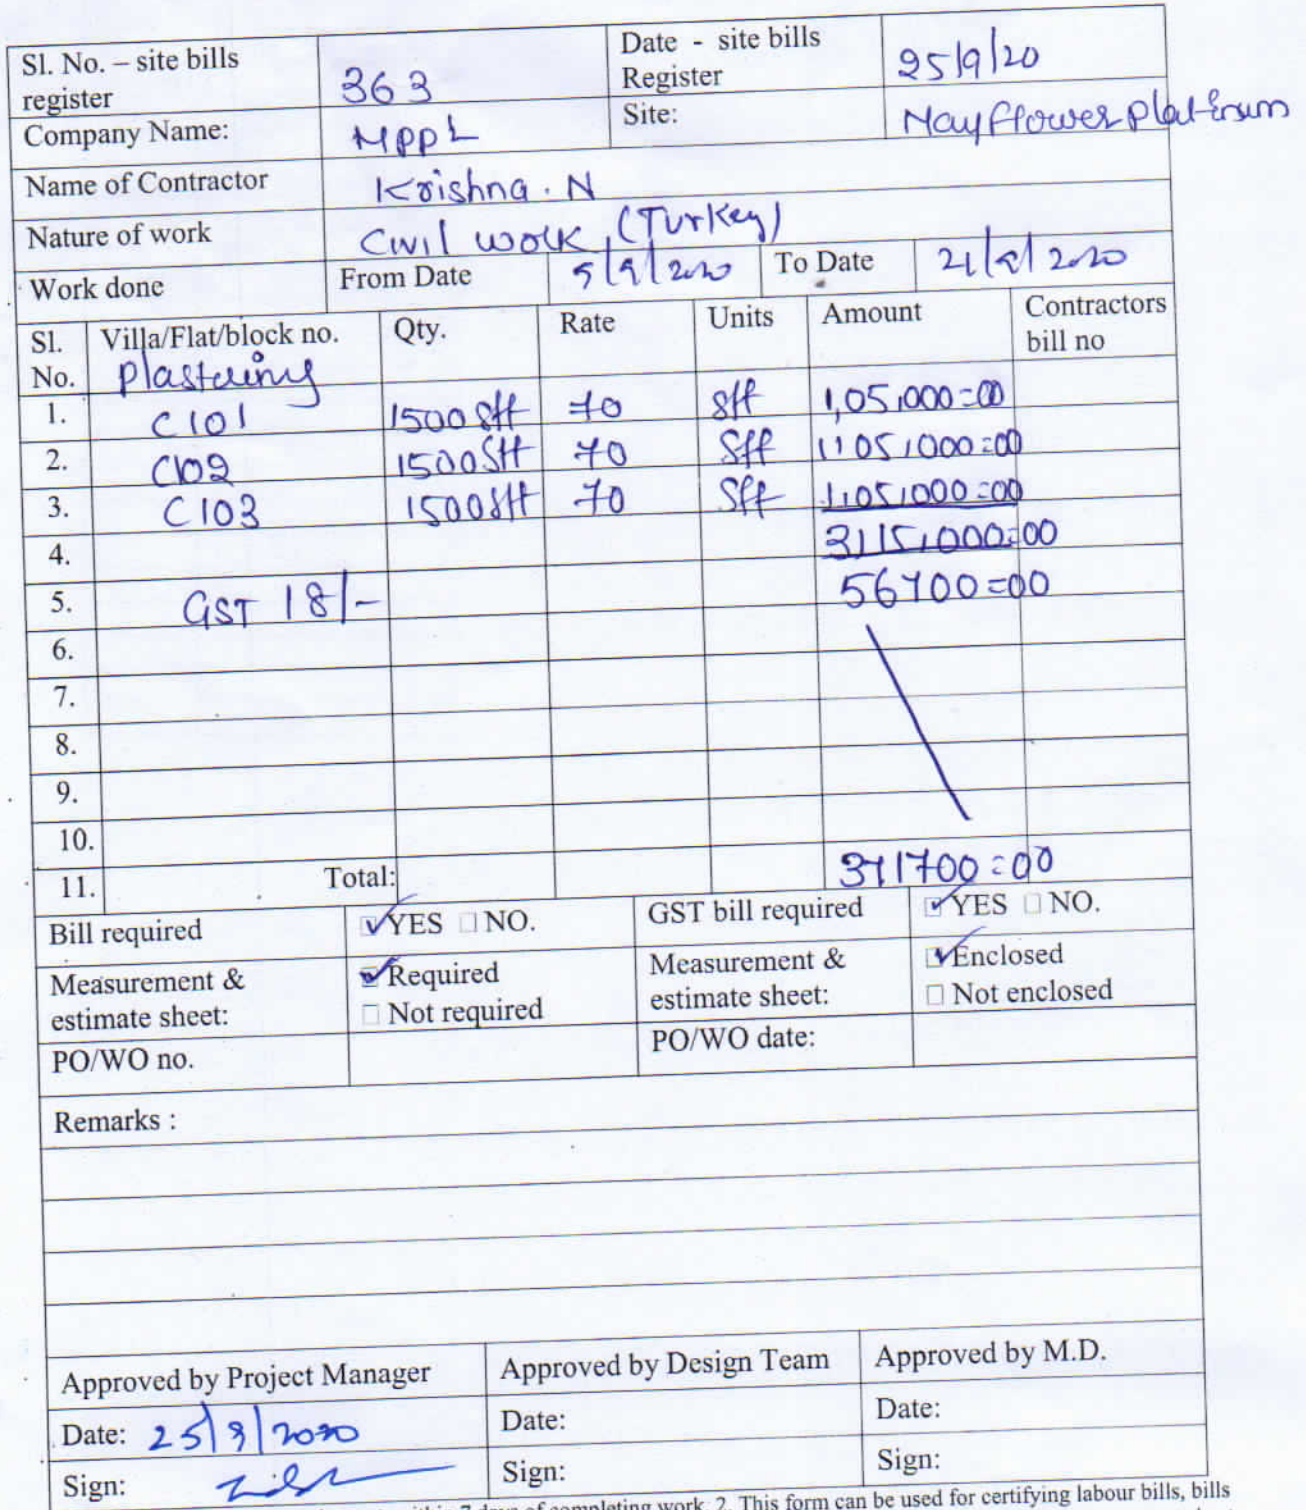 Sl. No. – site bills register 363 Date - site bills Register 25/9/20
Company Name: MPPL Site: Mayfflower platinum
Name of Contractor Krishna . N
Nature of work Civil work (Turkey)
Work done From Date 5/9/2020 To Date 21/9/2020
Sl. No. Villa/Flat/block no. Qty. Rate Units Amount Contractors bill no
Plastering
1. C101 1500 Sft 70 Sft 1,05,000=00
2. C102 1500 Sft 70 Sft 1,05,000=00
3. C103 1500 Sft 70 Sft 1,05,000=00
4. 3,15,000=00
5. GST 18/- 56700=00
6.
7.
8.
9.
10.
11. Total: 371700=00
Bill required YES NO. GST bill required YES NO.
Measurement & estimate sheet: Required Not required Measurement & estimate sheet: Enclosed Not enclosed
PO/WO no. PO/WO date:
Remarks :
Approved by Project Manager Approved by Design Team Approved by M.D.
Date: 25/9/2020 Date: Date:
Sign: Sign: Sign:
7 days of completing work. 2. This form can be used for certifying labour bills, bills